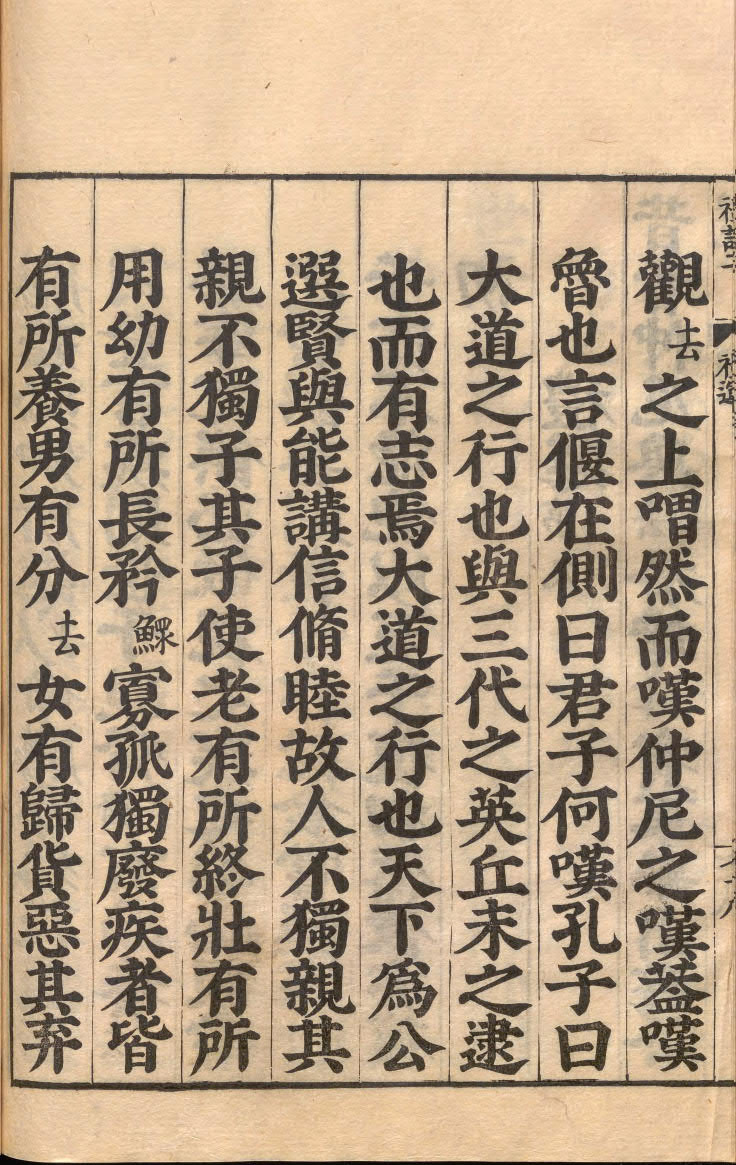 觀去之上喟然而嘆仲尼之嘆葢嘆
魯也言偃在側曰君子何嘆孔子曰
大道之行也與三代之英丘未之逮
也而有志焉大道之行也天下爲公
選賢與能講信脩睦故人不獨親其
親不獨子其子使老有所終壯有所
用幼有所長矜鰥寡孤獨廢疾者皆
有所養男有分去女有歸貨惡其弃